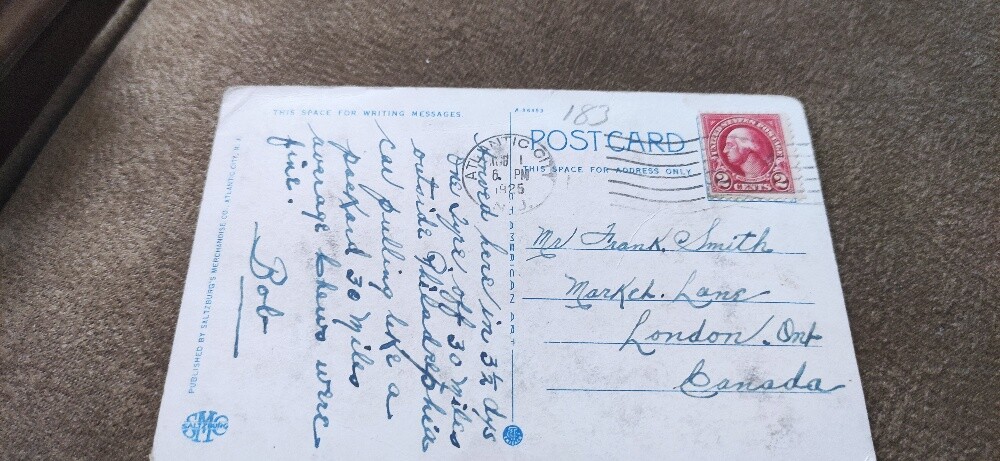 THIS SPACE FOR WRITING MESSAGES
A 98853
183
POST CARD
THIS SPACE FOR ADDRESS ONLY
ATLANTIC CITY
AUG 1
6 PM
1925
N.J.
UNITED STATES POSTAGE
2 CENTS 2
Arrived here in 3½ dys
One Tyre off 30 miles
outside Philadelphia
car pulling like a
packard 30 Miles
average & views were
fine.
Bob
Mr Frank Smith
Market Lane
London. Ont
Canada
PUBLISHED BY SALTZBURG'S MERCHANDISE CO., ATLANTIC CITY, N.J.
SALTZBURG